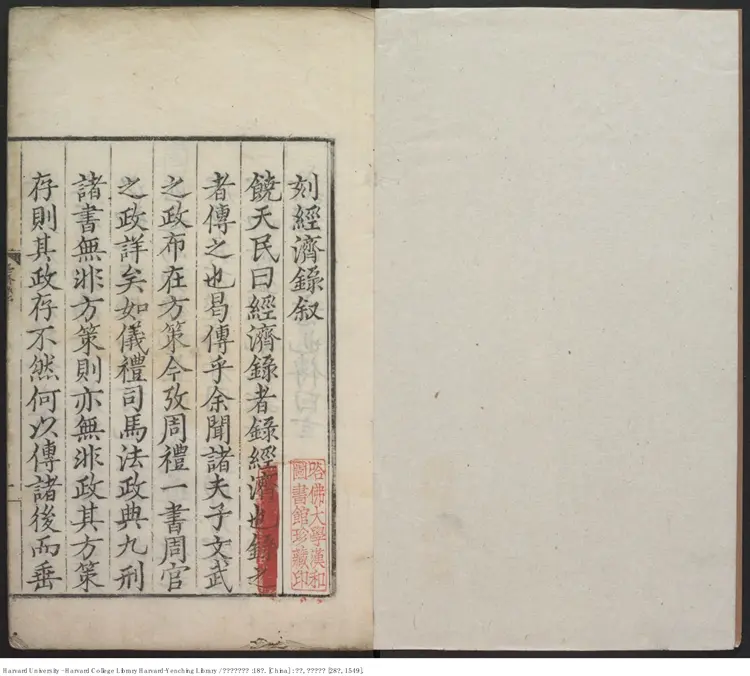 刻經濟錄叙
饒天民曰經濟錄者錄經濟也錄之
者傳之也曷傳乎余聞諸夫子文武
之政布在方策今攷周禮一書周官
之政詳矣如儀禮司馬法政典九刑
諸書無非方策則亦無非政其方策
存則其政存不然何以傳諸後而垂
哈佛大學漢和
圖書館珍藏印
Harvard University - Harvard College Library Harvard-Yenching Library / ??????? :18?. [China] : ??, ????? [28?, 1549].